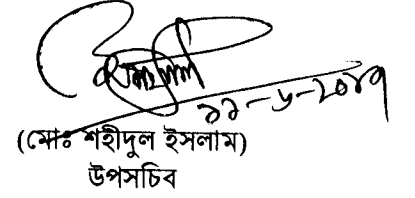 ২২-৬-২০১৭
(মোঃ শহীদুল ইসলাম)
উপসচিব